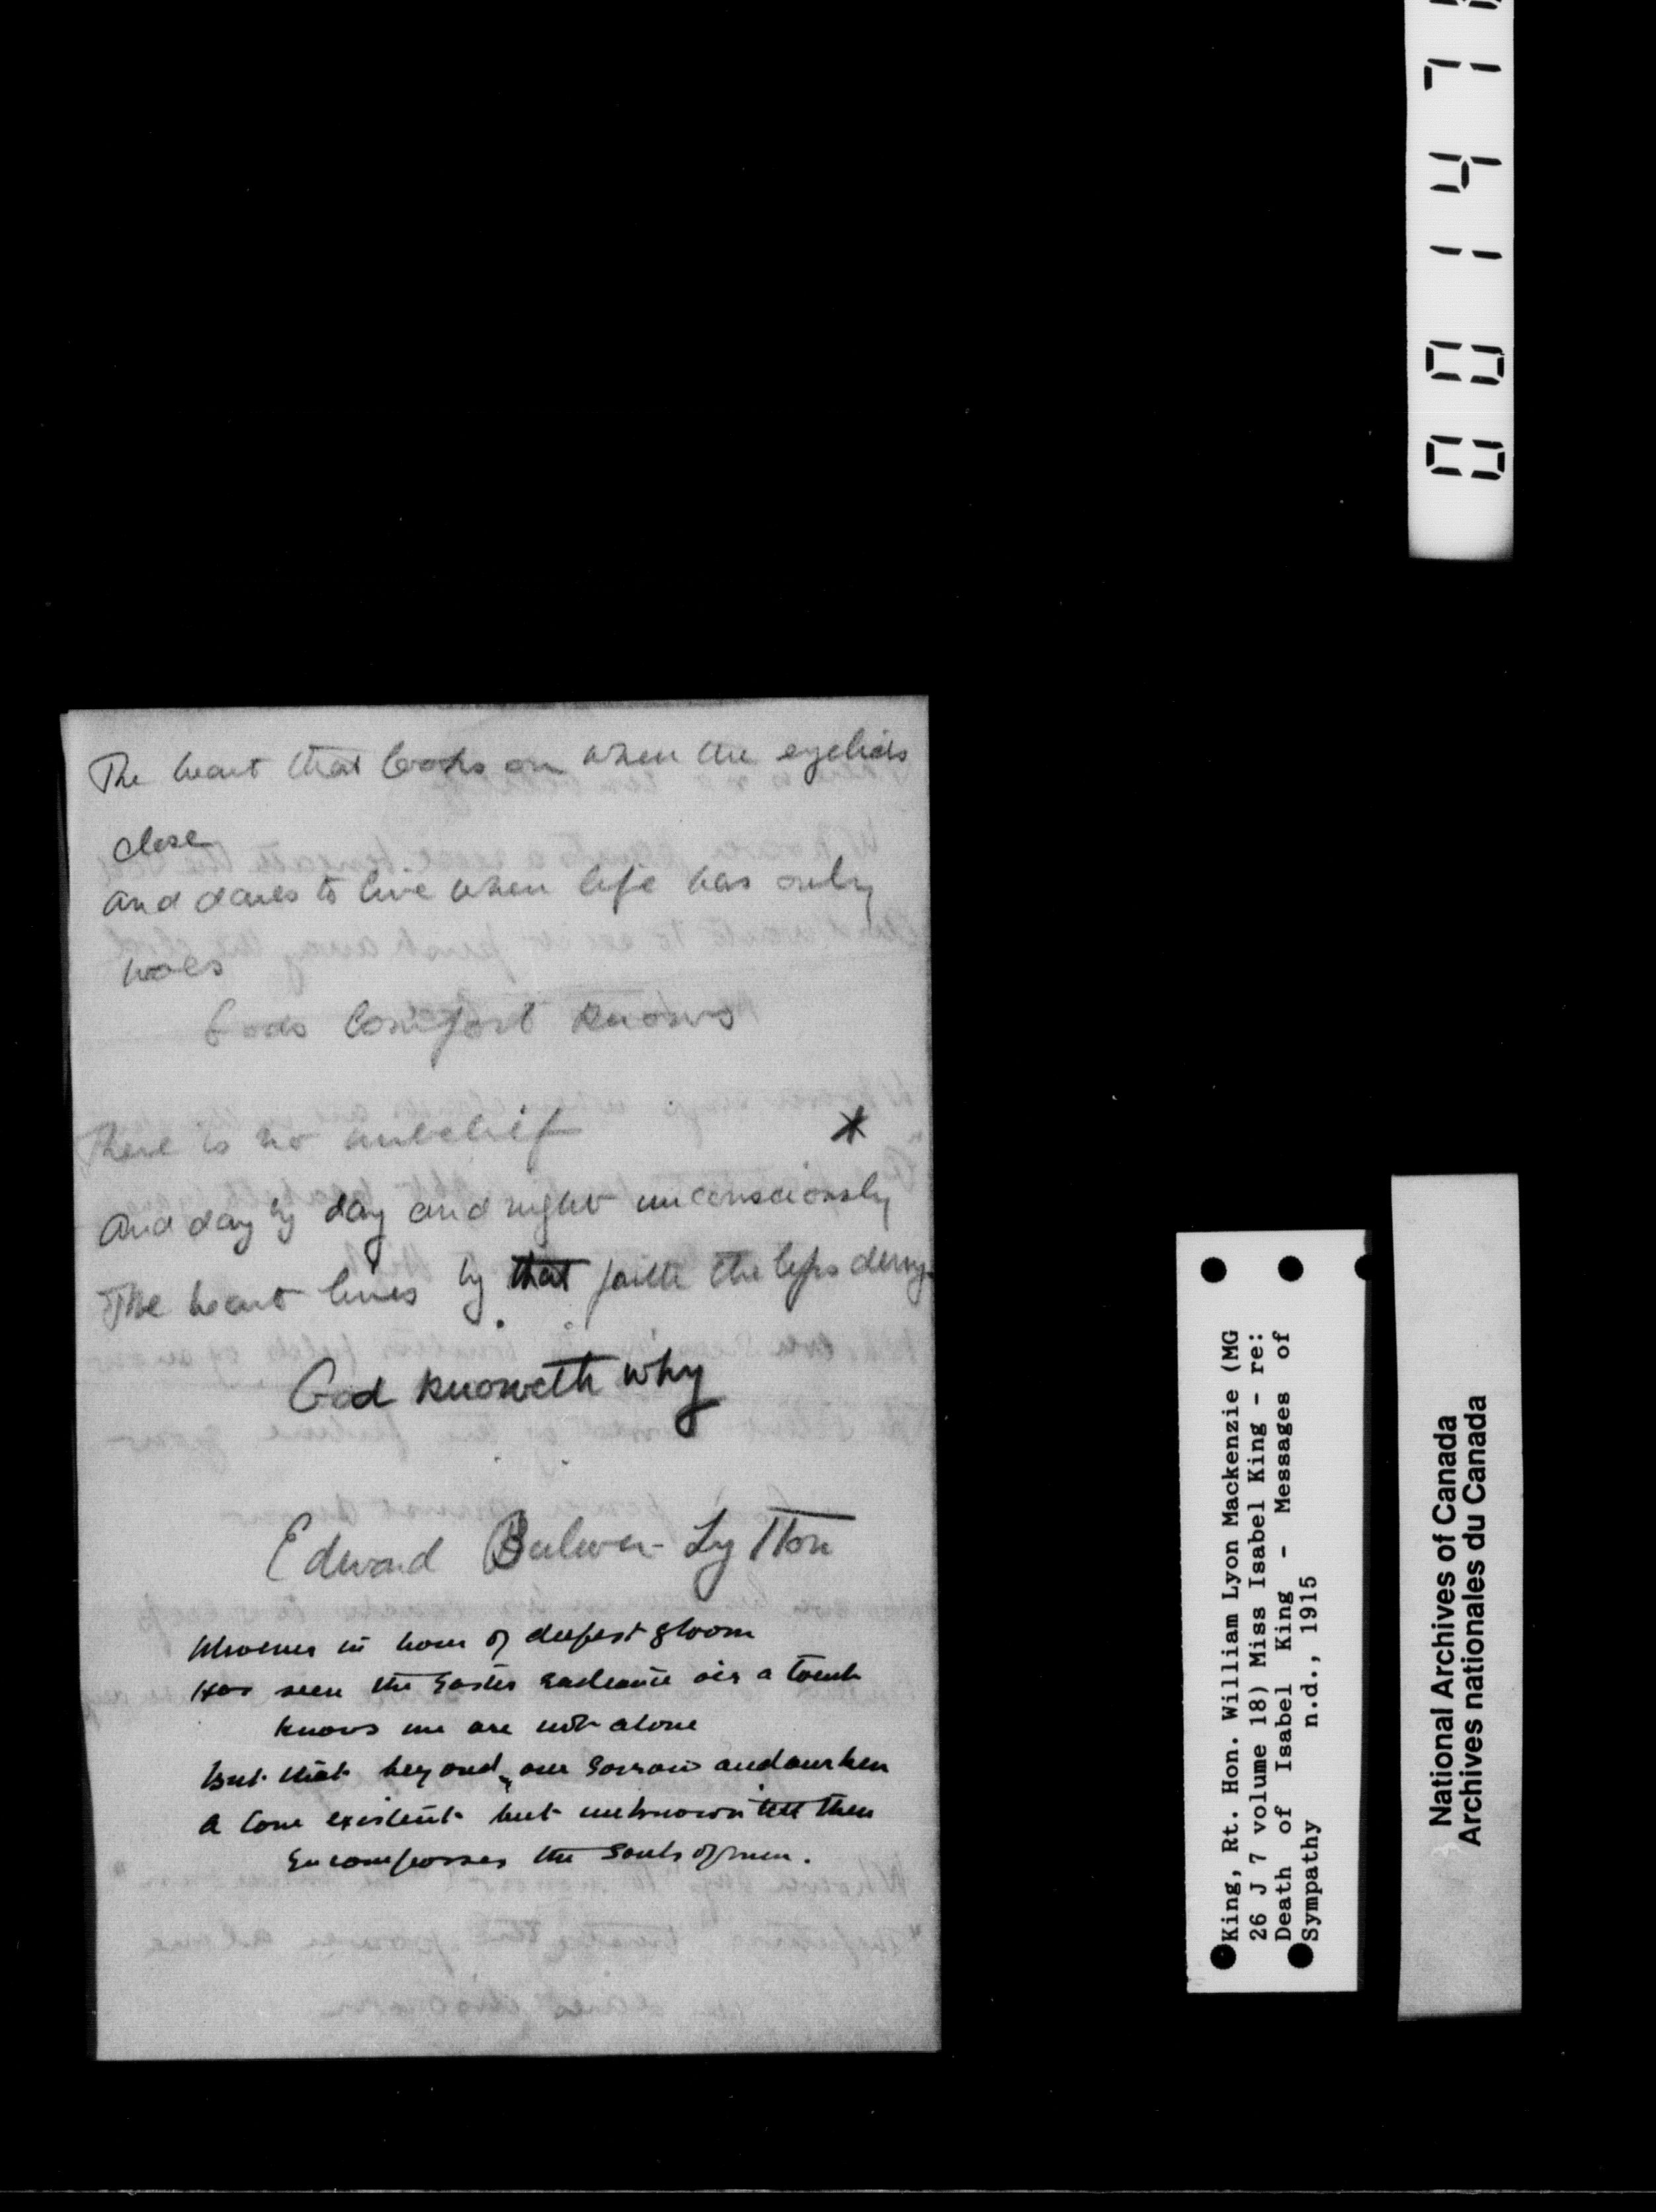 The heart that looks on when the eyelids
close
And dares to live when life has only
woes
Gods Comfort knows
There is no unbelief
And day by day and night unconsciously
The heart lives by that faith the lips deny.
God knoweth why
Edward Bulwer-Lytton
Whoever in hour of deepest gloom
Has seen the Easter radiance oer a tomb
knows we are not alone
But that beyond our sorrow and our ken
A love existent but unknown till then
Encompasses the souls of men.
King, Rt. Hon. William Lyon Mackenzie (MG
26 J 7 volume 18) Miss Isabel King - re:
Death of Isabel King - Messages of
Sympathy n.d., 1915
National Archives of Canada
Archives nationales du Canada
00147